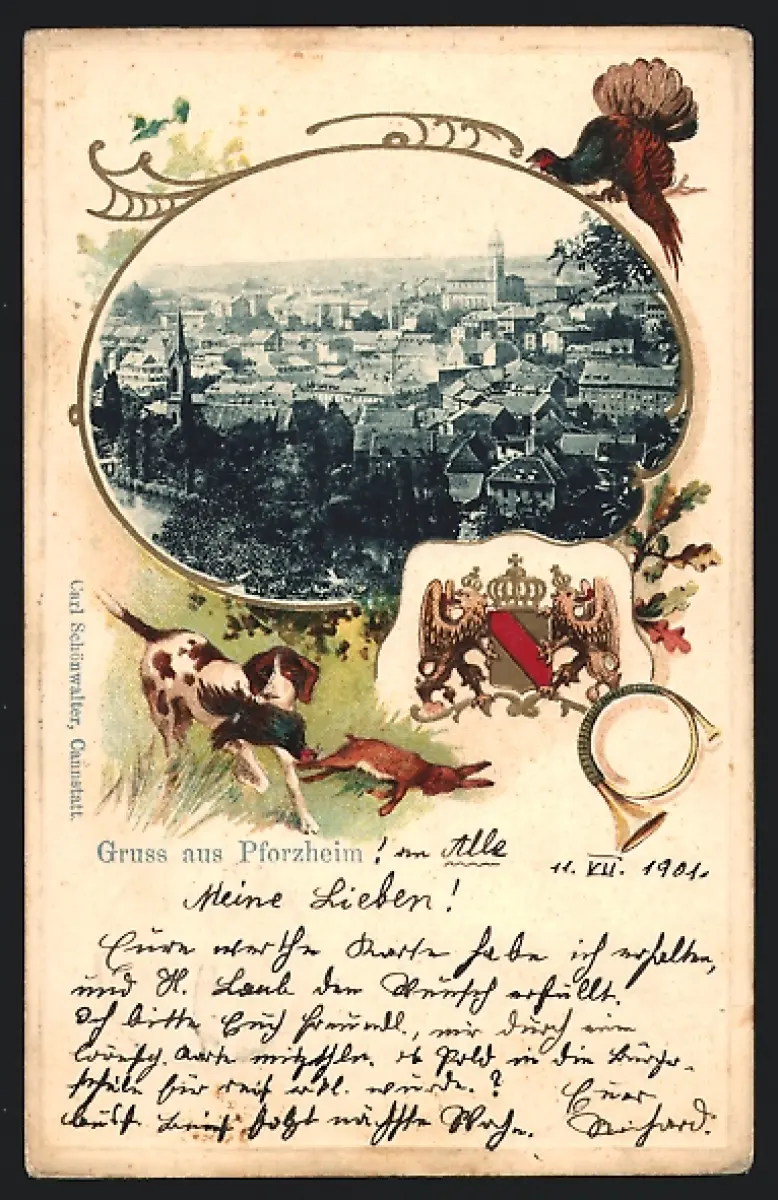 Carl Schönwalter, Cannstatt.
Gruss aus Pforzheim ! an Alle
11. VII. 1901.
Meine Lieben!
Eure werthe Karte habe ich erhalten,
und H. Laub den Wunsch erfüllt.
Ich bitte Euch freundl., mir durch eine
Karte mitzthln. ob Pold in die Bürger-
schule für reif erkl. wurde.?
Brief folgt nächste Woche.
Euer
Richard.